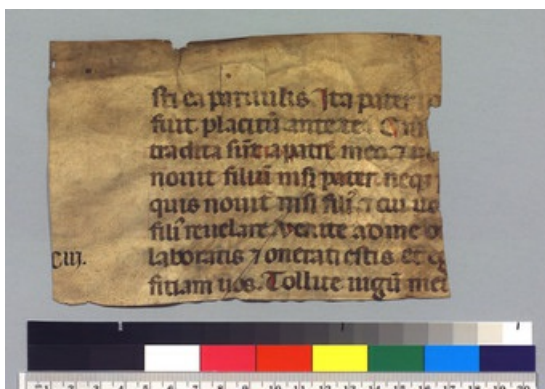 sti ea paruulis. Ita pater
fuit placitū ante te.
tradita sūt a patre meo. ⁊
nouit filiū nisi pater. neqꝫ
quis nouit nisi fili⁹ ⁊ cui uo
fili⁹ reuelare. Venite ad me o
CIIJ. laboratis ⁊ onerati estis et eg
ficiam uos. Tollite iugū meū